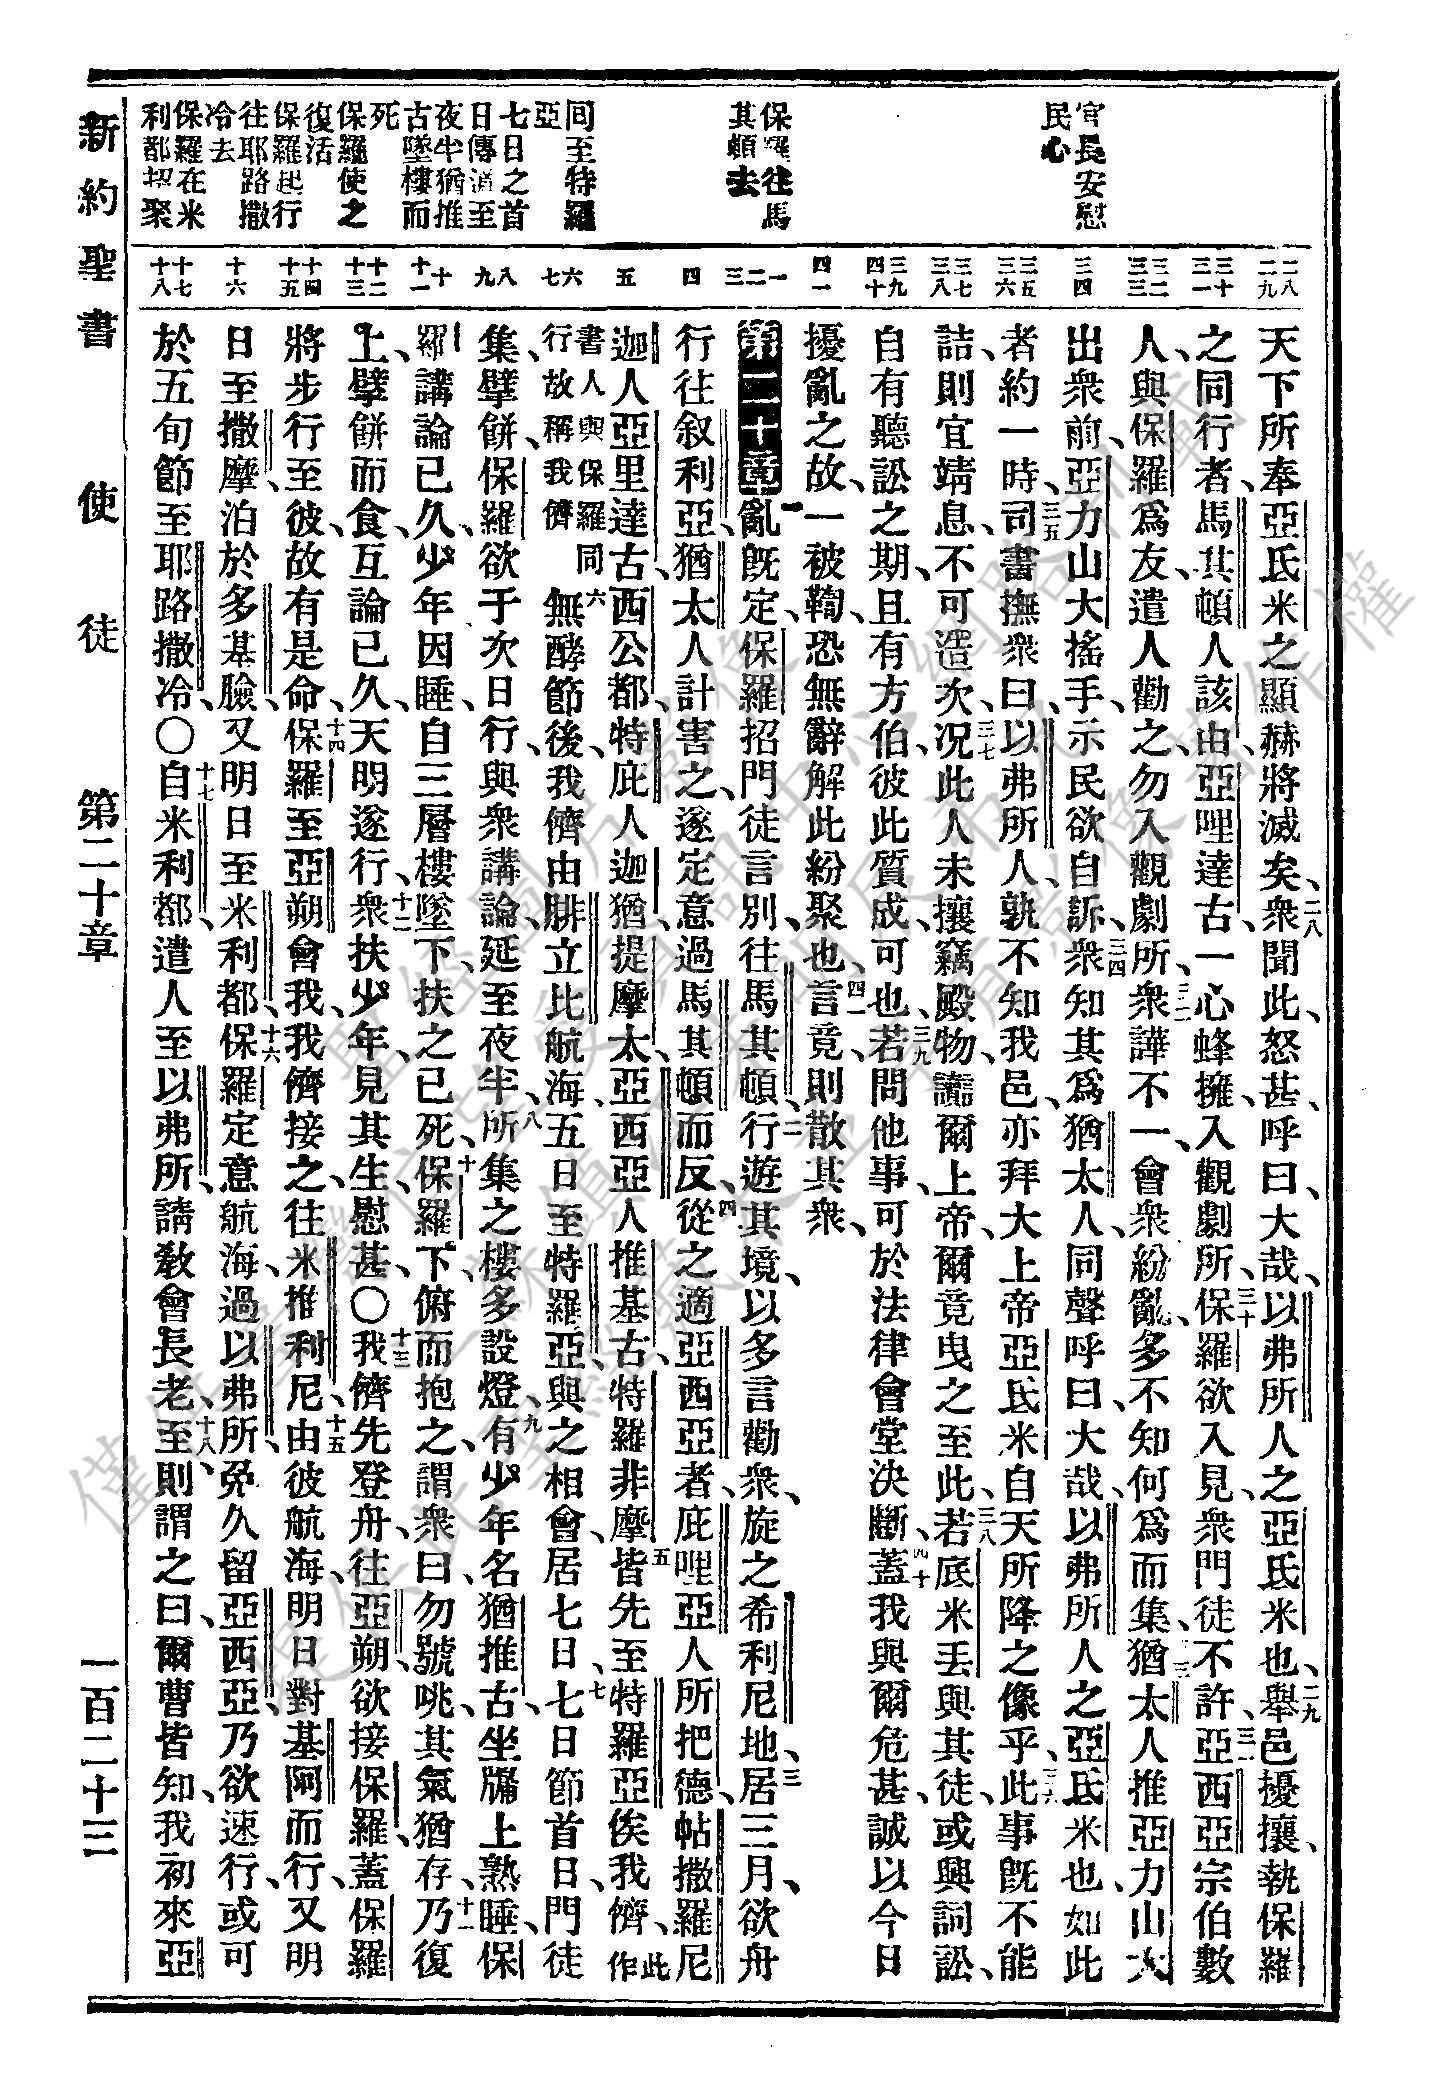 官長安慰
民心
保羅往馬
其頓去
同至特羅
亞
七日之首
日傳道至
夜半猶推
古墜樓而
死
保羅使之
復活
保羅起行
往耶路撒
冷去
保羅在米
利都招聚
二八 二九
三十 三一
三二 三三
三四
三五 三六
三七 三八
三九 四十
四一
一 二 三
四
五
六 七
八 九
十 十一
十二 十三
十四 十五
十六
十七 十八
天下所奉亞氐米之顯赫將滅矣、二八衆聞此、怒甚、呼曰、大哉、以弗所人之亞氐米也、二九舉邑擾攘、執保羅
之同行者、馬其頓人該由、亞哩達古、一心蜂擁、入觀劇所、三十保羅欲入見衆、門徒不許、三一亞西亞宗伯數
人、與保羅爲友、遣人勸之、勿入觀劇所、三二衆譁不一、會衆紛亂、多不知何爲而集、三三猶太人推亞力山大
出衆前、亞力山大搖手、示民欲自訴、三四衆知其爲猶太人、同聲呼曰、大哉、以弗所人之亞氐米也、如此
者約一時、三五司書撫衆曰、以弗所人、孰不知我邑、亦拜大上帝亞氐米、自天所降之像乎、三六此事旣不能
詰、則宜靖息、不可造次、三七况此人未攘竊殿物、讟爾上帝、爾竟曳之至此、三八若底米丟與其徒、或興詞訟、
自有聽訟之期、且有方伯、彼此質成、可也、三九若問他事、可於法律會堂決斷、四十蓋我與爾危甚、誠以今日
擾亂之故、一被鞫、恐無辭解此紛聚也、四一言竟、則散其衆、
第二十章 一亂旣定、保羅招門徒言別、往馬其頓、二行遊其境、以多言勸衆、旋之希利尼地、三居三月、欲舟
行往叙利亞、猶太人計害之、遂定意過馬其頓而反、四從之適亞西亞者、庇哩亞人所把德、帖撒羅尼
迦人亞里達古、西公都、特庇人迦猶、提摩太、亞西亞人推基古、特羅非摩、五皆先至特羅亞俟我儕、此作
書人與保羅同行故稱我儕 六無酵節後、我儕由腓立比航海、五日至特羅亞、與之相會、居七日、七七日節首日、門徒
集擘餅、保羅欲于次日行、與衆講論、延至夜半、八所集之樓多設燈、九有少年名猶推古、坐牖上熟睡、保
羅講論已久、少年因睡、自三層樓墜下、扶之已死、十保羅下、俯而抱之、謂衆曰、勿號咷、其氣猶存、十一乃復
上、擘餅而食、互論已久、天明遂行、十二衆扶少年、見其生、慰甚、〇十三我儕先登舟、往亞朔、欲接保羅、蓋保羅
將步行至彼、故有是命、十四保羅至亞朔會我、我儕接之、往米推利尼、十五由彼航海、明日對基阿而行、又明
日至撒摩、泊於多基臉、又明日至米利都、十六保羅定意航海、過以弗所、免久留亞西亞、乃欲速行、或可
於五旬節至耶路撒冷、〇十七自米利都、遣人至以弗所、請教會長老、十八至則謂之曰、爾曹皆知、我初來亞
新約聖書 使徒 第二十章 一百二十三